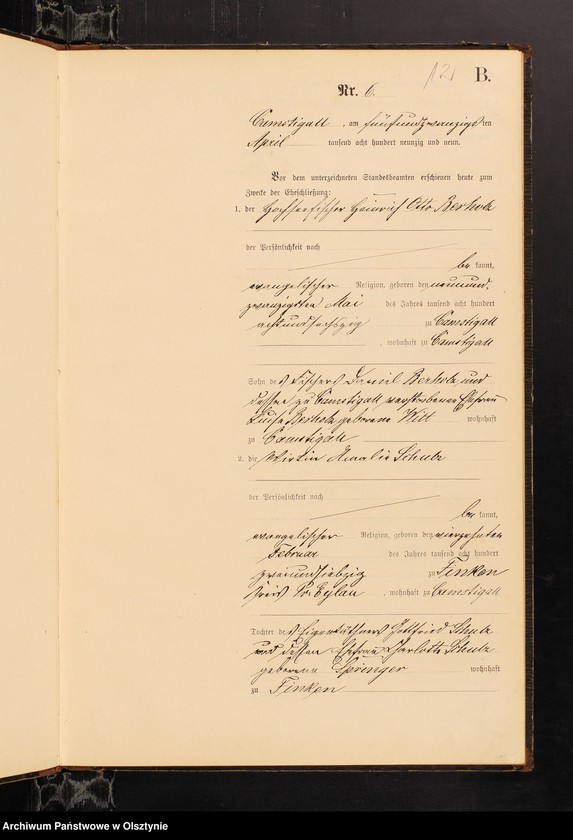 12
B.
Nr. 6.
Camstigall, am fünfundzwanzigsten
April tausend acht hundert neunzig und neun.
Vor dem unterzeichneten Standesbeamten erschienen heute zum
Zwecke der Eheschließung:
1. der Heinrich Otto Berholz
der Persönlichkeit nach
be kannt,
evangelischer Religion, geboren den neunund-
zwanzigsten Mai des Jahres tausend acht hundert
achtundsechszig zu Camstigall
, wohnhaft zu Camstigall
Sohn des Fischers Daniel Berholz und
dessen zu Camstigall verstorbenen Ehefrau
Luise Berholz geborene Witt wohnhaft
zu Camstigall
2. die Wirtin Amalie Schulz
der Persönlichkeit nach
be kannt,
evangelischer Religion, geboren den vierzehnten
Februar des Jahres tausend acht hundert
zweiundsiebzig zu Finken
Kreis Pr. Eylau, wohnhaft zu Camstigall
Tochter des Eigenkäthners Gottfried Schulz
und dessen Ehefrau Charlotte Schulz
geborene Springer wohnhaft
zu Finken
Archiwum Państwowe w Olsztynie